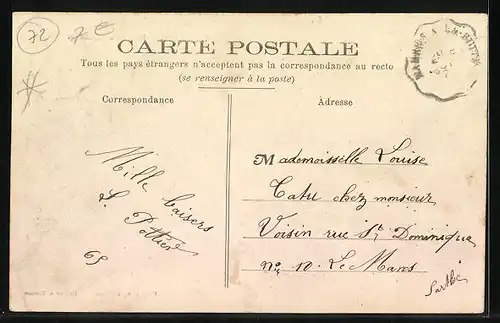 72
CARTE POSTALE
Tous les pays étrangers n'acceptent pas la correspondance au recto
(se renseigner à la poste)
Correspondance
Adresse
Mille baisers
L. Pottier
65
Mademoiselle Louise
Tatu chez monsieur
Voisin rue St Dominique
no 10. Le Mans
Sarthe